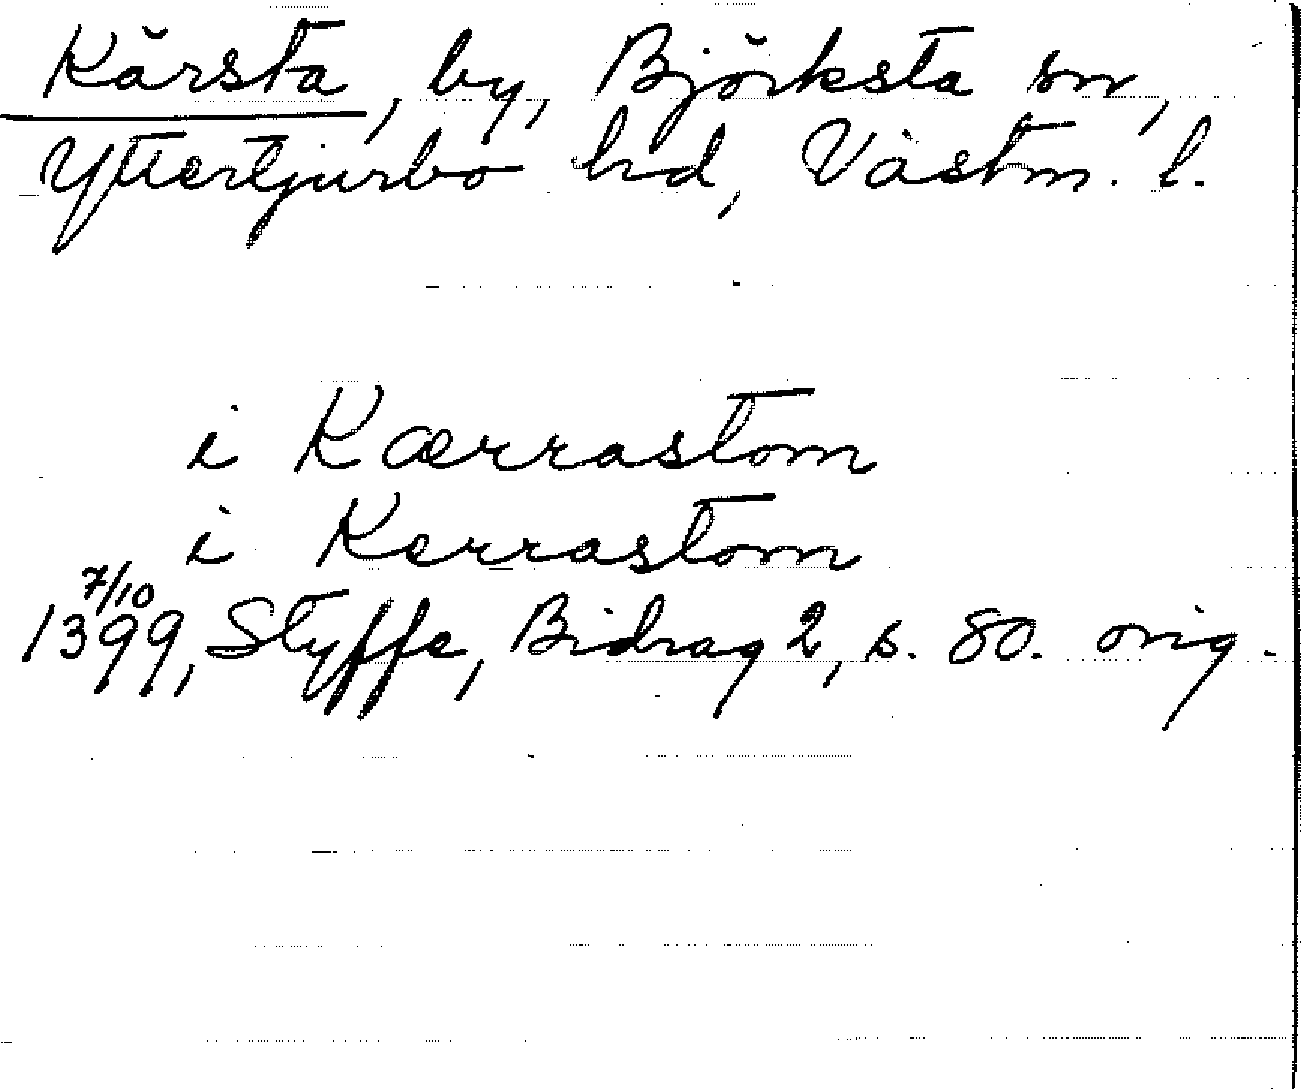 Kärsta, by, Björksta sn,
Yttertjurbo hd, Västm. l.
i Kærrastom
i Kerrastom
7/10
1399, Styffe, Bidrag 2, s. 80. orig.